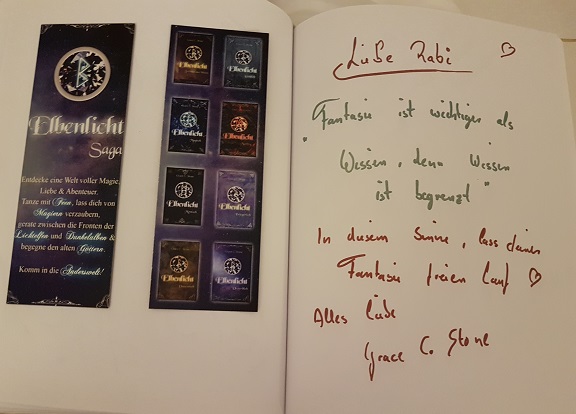 Elbenlicht
Saga
Entdecke eine Welt voller Magie,
Liebe & Abenteuer.
Tanze mit Feen, lass dich von
Magiern verzaubern,
gerate zwischen die Fronten der
Lichtelfen und Dunkelalben &
begegne den alten Göttern.
Komm in die Anderswelt!
Elbenlicht
Elbenlicht
Elbenlicht
Elbenlicht
Elbenlicht
Elbenlicht
Elbenlicht
Elbenlicht
Liebe Rabi
"Fantasie ist wichtiger als
Wissen, denn Wissen
ist begrenzt"
In diesem Sinne, lass deiner
Fantasie freien Lauf
Alles Liebe
Grace C. Stone